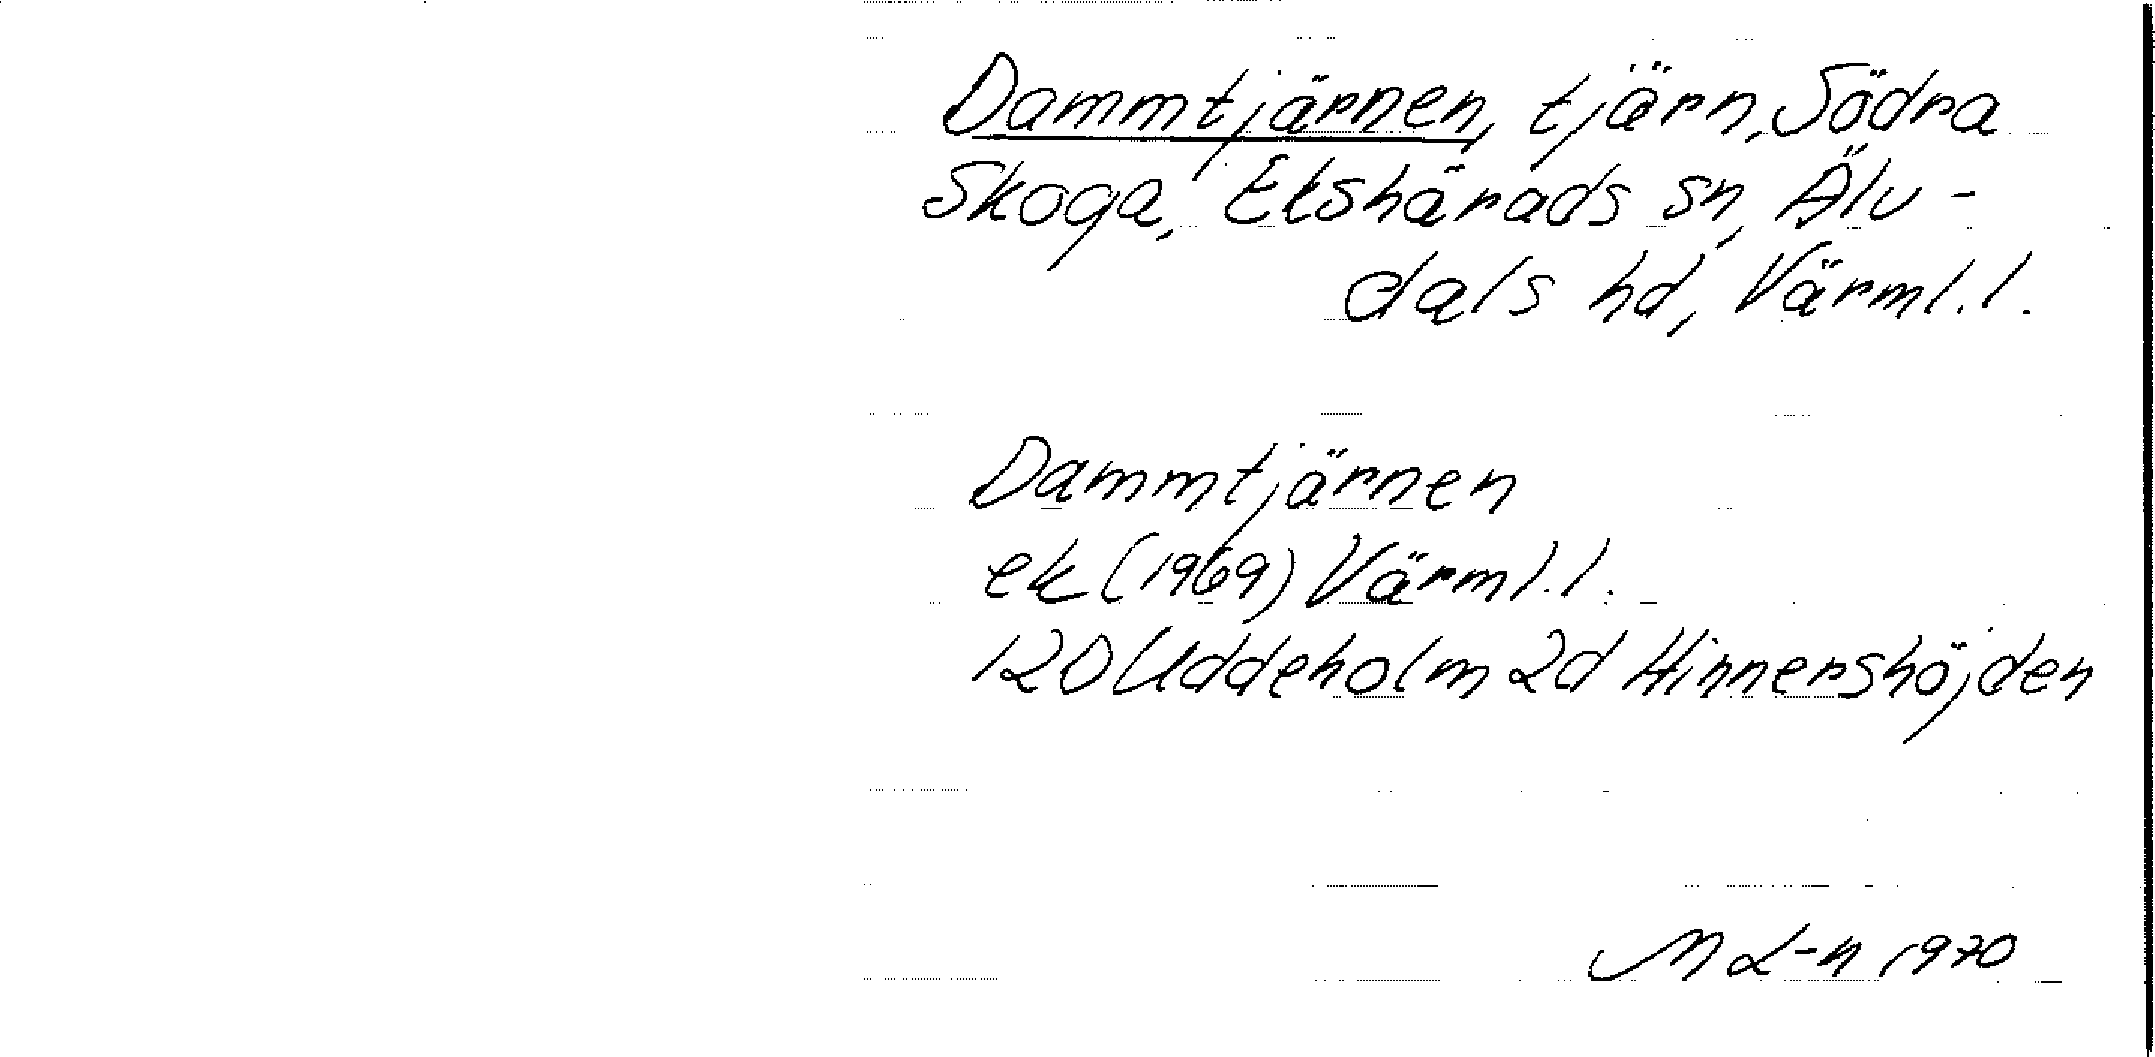 Dammtjärnen, tjärn, Södra
Skoga, Ekshärads sn, Älv-
dals hd, Värml.l.
Dammtjärnen
ek (1969) Värml.l.
12D Uddeholm 2d Hinnershöjden
M L-n 1970